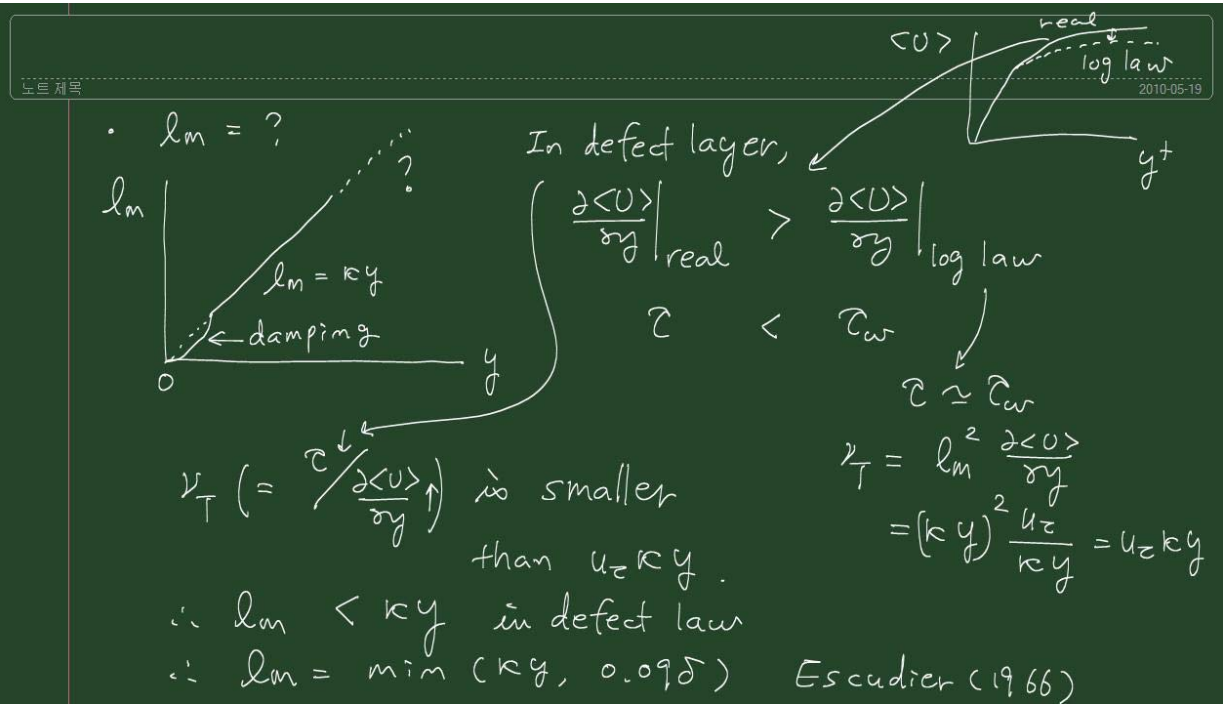 <U>
real
log law
y⁺
노트 제목
2010-05-19
· lm = ?
?
lm
lm = κy
← damping
0
y
In defect layer,
∂<U>/∂y |real > ∂<U>/∂y |log law
τ < τw
τ ≃ τw
νT = lm² ∂<U>/∂y
= (κy)² uτ/κy = uτκy
νT (= τ↓ / ∂<U>/∂y ↑) is smaller
than uτκy.
∴ lm < κy in defect law
∴ lm = min (κy, 0.09δ) Escudier (1966)